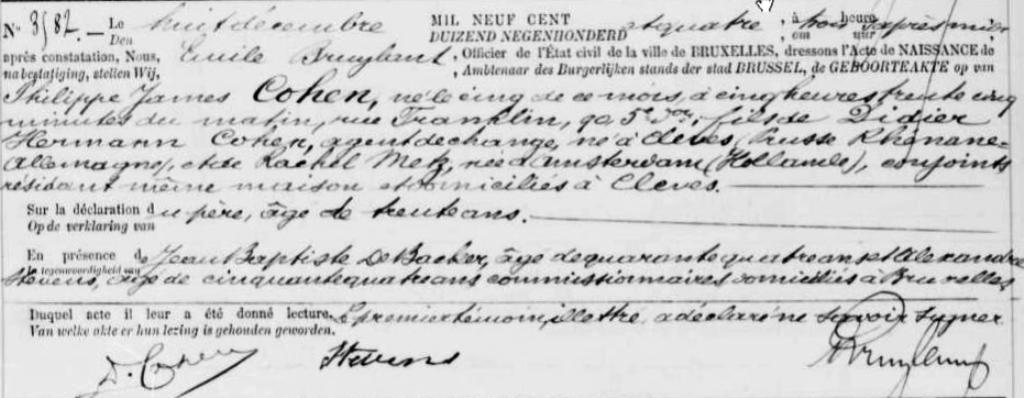 N° 3587.— Le huit décembre MIL NEUF CENT et quatre, à trois heures après-midi
Den DUIZEND NEGENHONDERD om uur
après constatation, Nous, Emile Bruylant, Officier de l'État civil de la ville de BRUXELLES, dressons l'Acte de NAISSANCE de
na bestatiging, stellen Wij, Ambtenaar des Burgerlijken stands der stad BRUSSEL, de GEBOORTEAKTE op van
Philippe James Cohen, né le cinq de ce mois, à cinq heures trente cinq
minutes du matin, rue Franklin, 5 fils de Didier
Hermann Cohen, agent de change, né à Clèves, (Prusse Rhénane-
Allemagne) et de Rachel Metz, née à Amsterdam (Hollande), conjoints
résidant même maison et domiciliés à Clèves.
Sur la déclaration du père, âgé de trente ans.
Op de verklaring van
En présence de Jean Baptiste De Backer, âgé de quarante quatre ans et Alexandre
In tegenwoordigheid van
Stevens, âgé de cinquante quatre ans commissionnaires domiciliés à Bruxelles
Duquel acte il leur a été donné lecture. Le premier témoin, illettré, a déclaré ne savoir signer
Van welke akte er hun lezing is gehouden geworden.
D. Cohen Stevens Bruylant